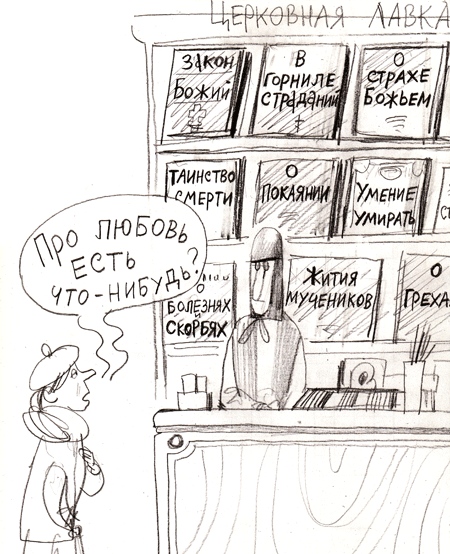 ЦЕРКОВНАЯ ЛАВКА
ЗАКОН
БОЖИЙ
В
ГОРНИЛЕ
СТРАДАНИЙ
О
СТРАХЕ
БОЖЬЕМ
ТАИНСТВО
СМЕРТИ
О
ПОКАЯНИИ
УМЕНИЕ
УМИРАТЬ
ПРО ЛЮБОВЬ
ЕСТЬ
ЧТО-НИБУДЬ?
О
БОЛЕЗНЯХ
И
СКОРБЯХ
ЖИТИЯ
МУЧЕНИКОВ
О
ГРЕХА